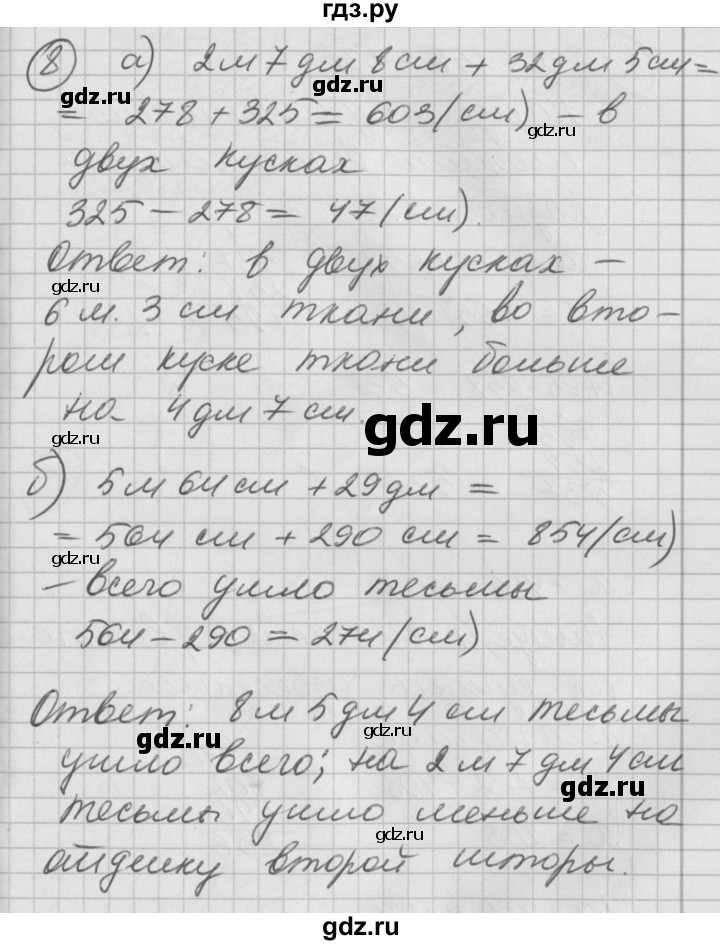 гдз.ру
8 а) 2 м 7 дм 8 см + 32 дм 5 см =
= 278 + 325 = 603 (см) – в
двух кусках
325 – 278 = 47 (см).
Ответ: в двух кусках –
6 м. 3 см ткани, во вто-
ром куске ткани больше
на 4 дм 7 см.
б) 5 м 64 см + 29 дм =
= 564 см + 290 см = 854 (см)
– всего ушло тесьмы
564 – 290 = 274 (см)
Ответ: 8 м 5 дм 4 см тесьмы
ушло всего; на 2 м 7 дм 4 см
тесьмы ушло меньше на
отделку второй шторы.
gdz.ru
gdz.ru
gdz.ru
gdz.ru
gdz.ru
gdz.ru
gdz.ru
gdz.ru
gdz.ru
gdz.ru
gdz.ru
gdz.ru
gdz.ru
gdz.ru